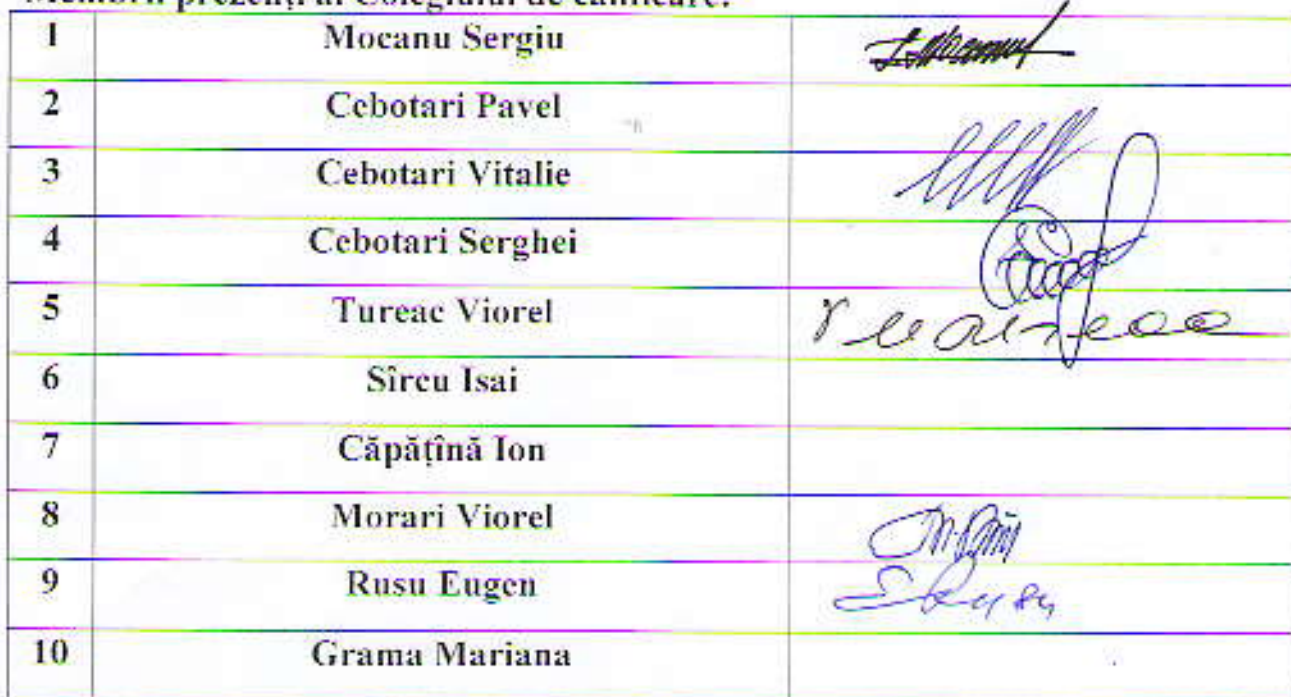 Membrii prezenți ai Colegiului de calificare:
1 Mocanu Sergiu
2 Cebotari Pavel
3 Cebotari Vitalie
4 Cebotari Serghei
5 Tureac Viorel
6 Sîrcu Isai
7 Căpățînă Ion
8 Morari Viorel
9 Rusu Eugen ERusu
10 Grama Mariana